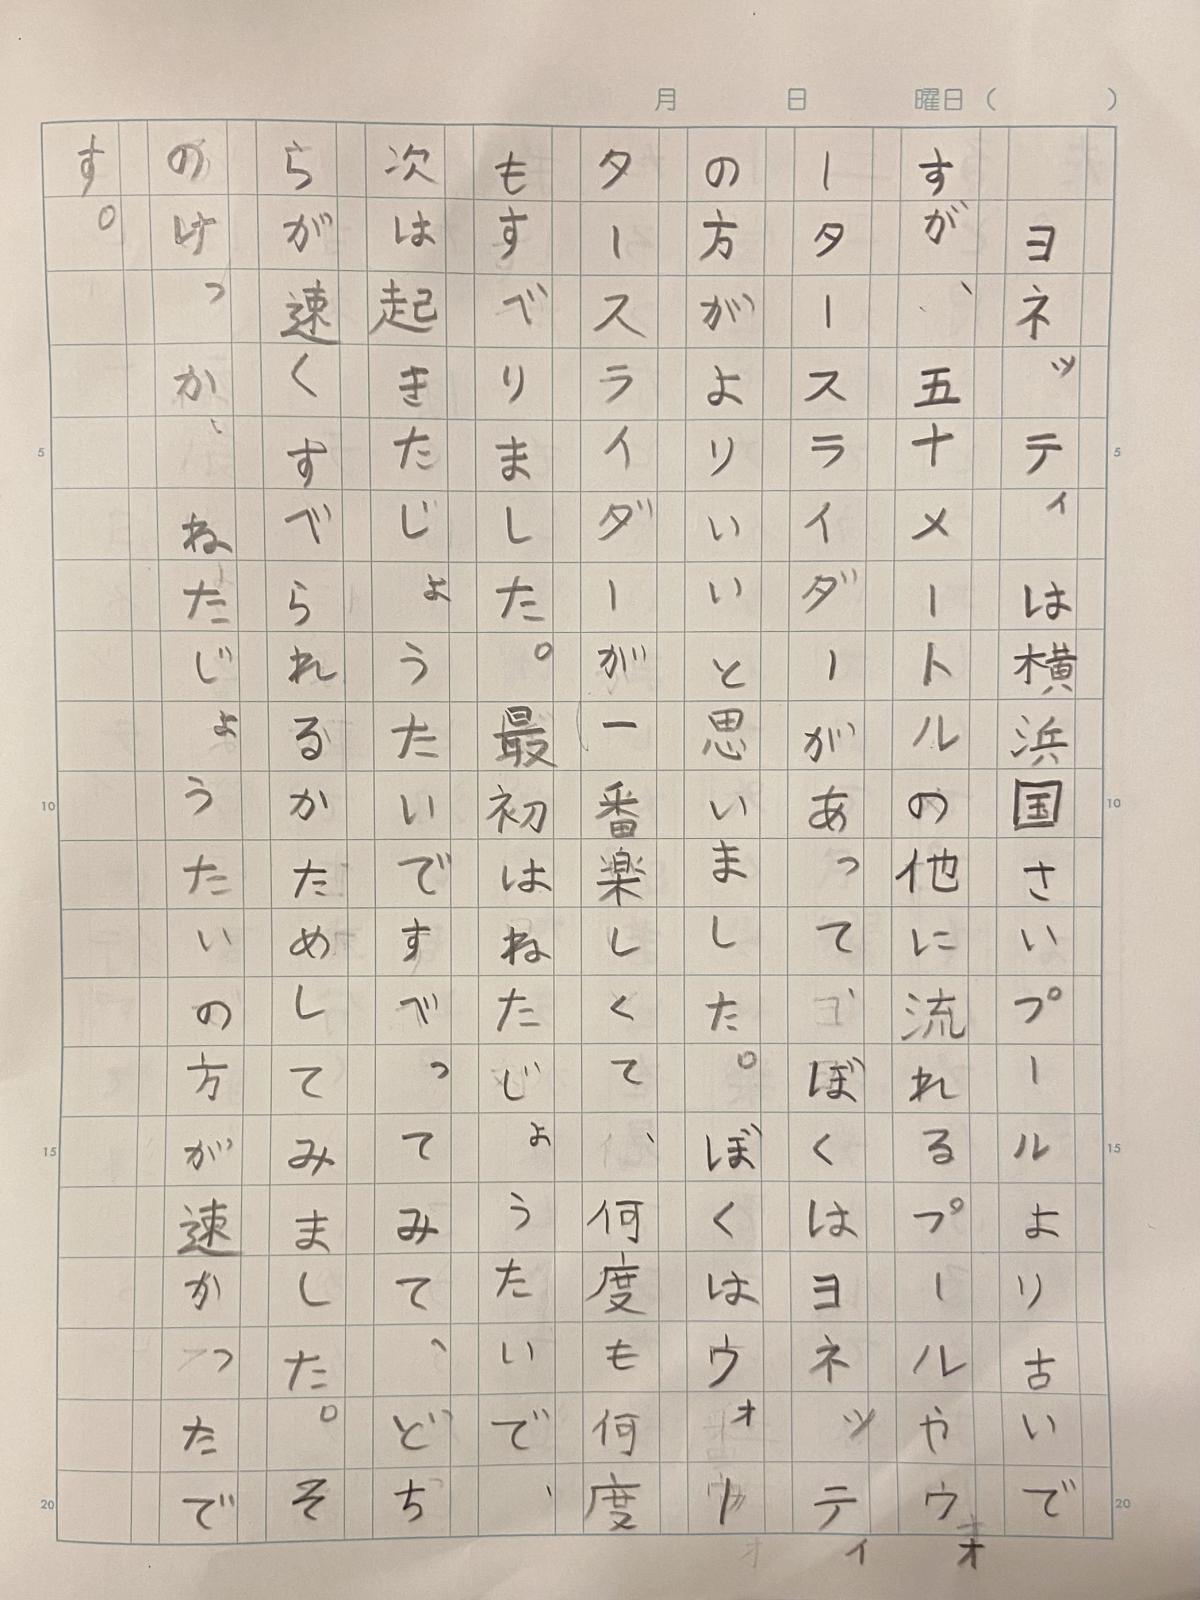 月 日 曜日（ ）
ヨネッティは横浜国さいプールより古いで
すが、五十メートルの他に流れるプールやウォ
ータースライダーがあってぼくはヨネッティ
の方がよりいいと思いました。ぼくはウォー
タースライダーが一番楽しくて、何度も何度
もすべりました。最初はねたじょうたいで、
次は起きたじょうたいですべってみて、どち
らが速くすべられるかためしてみました。そ
のけっか、ねたじょうたいの方が速かったで
す。
5
10
15
20
5
10
15
20